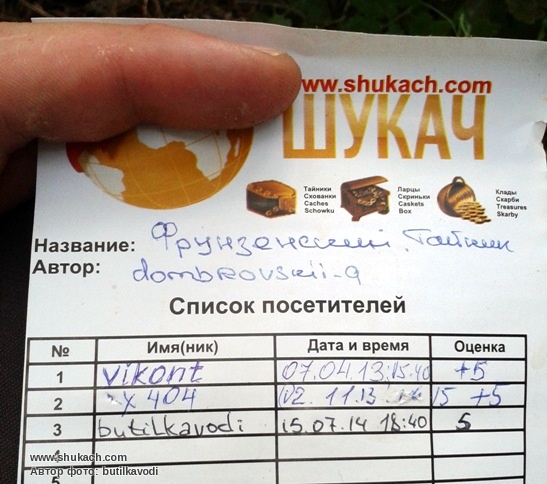 www.shukach.com
ШУКАЧ
Тайники
Схованки
Caches
Schowku
Ларцы
Скриньки
Caskets
Box
Клады
Скарби
Treasures
Skarby
Название: Фрунзенский Тайник
Автор: dombrovskii-a
Список посетителей
№ Имя(ник) Дата и время Оценка
1 vikont 07.04.13; 15.40 +5
2 x404 11.13 15 +5
3 butilkavodi 15.07.14 18:40 5
4
5
www.shukach.com
Автор фото: butilkavodi